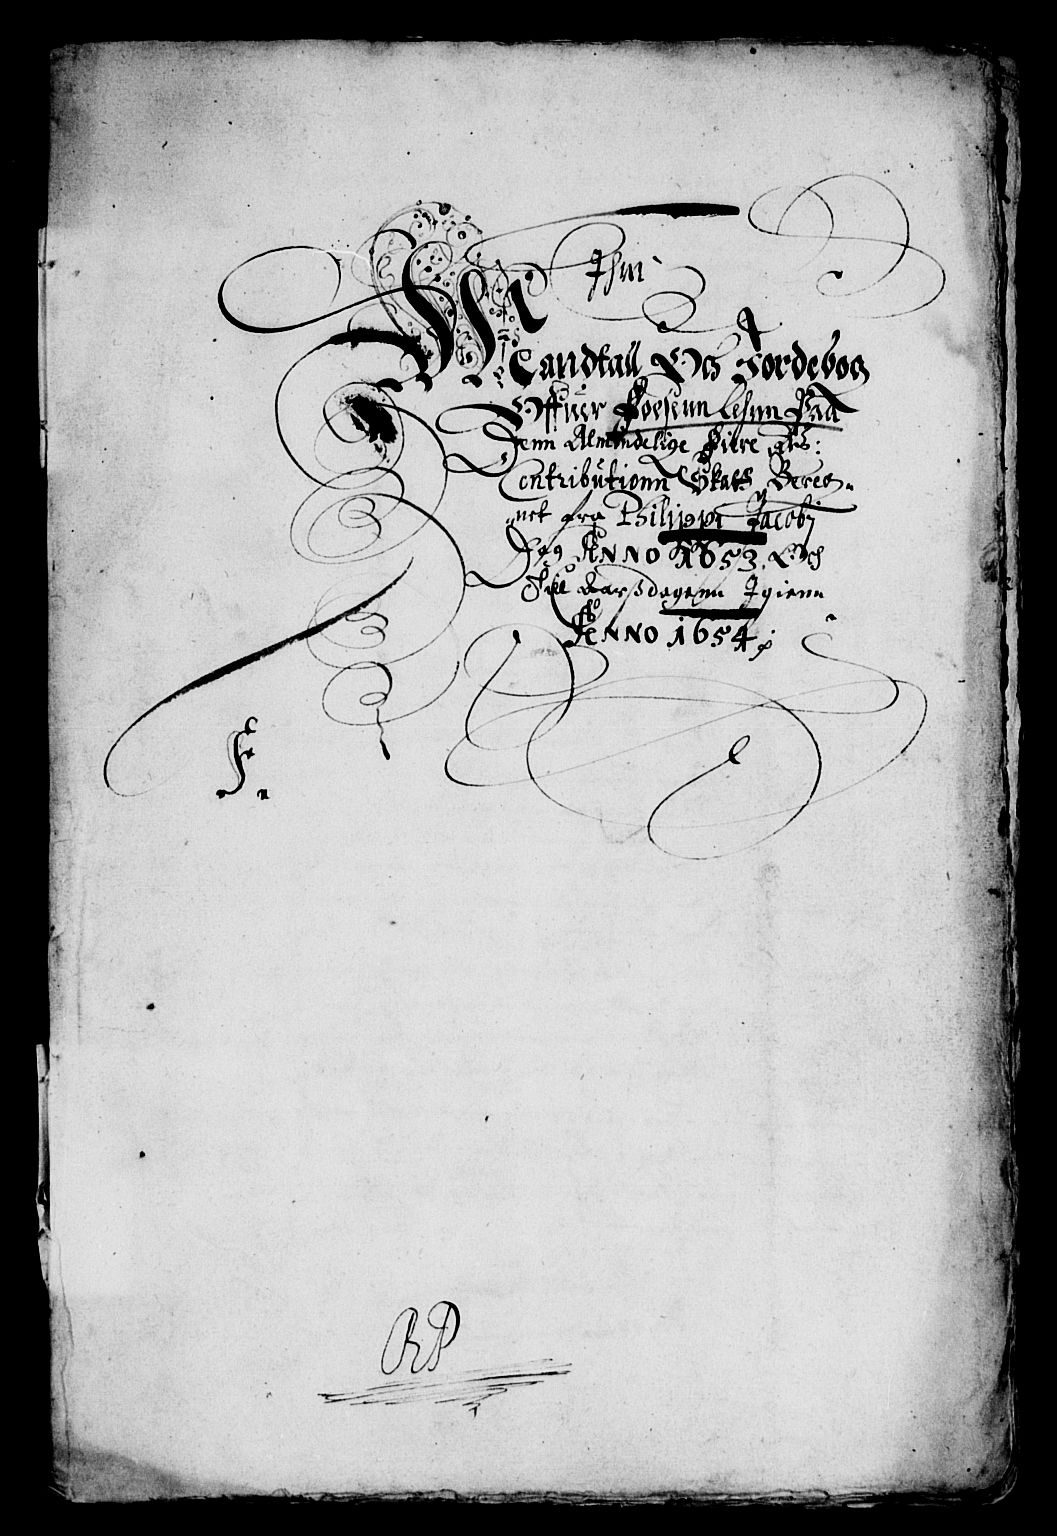 Jhm
Mandtall Och Jordebog
Offuer Foesenn Lehnn Paa
Denn Almindelige Fiire
Contributionn Skatt Bereg-
net fra Philippi Jacobj
Dag ANNO 1653. Och
Till Aarsdagenn Igienn
ANNO 1654
F.
RP